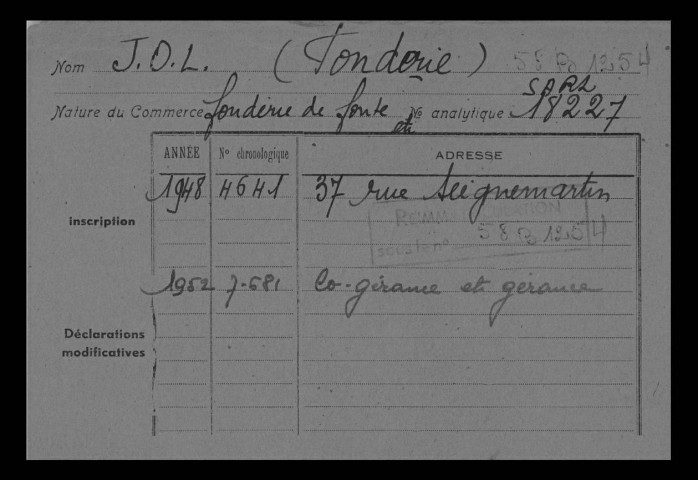 Nom J.O.L. (Fonderie) 58 B 1254
SARL
Nature du Commerce fonderie de fonte etc Nº analytique 18227
ANNÉE Nº chronologique ADRESSE
inscription 1948 4641 37 rue Seignemartin
REIMMATRICULATION
sous le nº 58 B 1254
1952 7.681 Co-gérance et gérance
Déclarations
modificatives